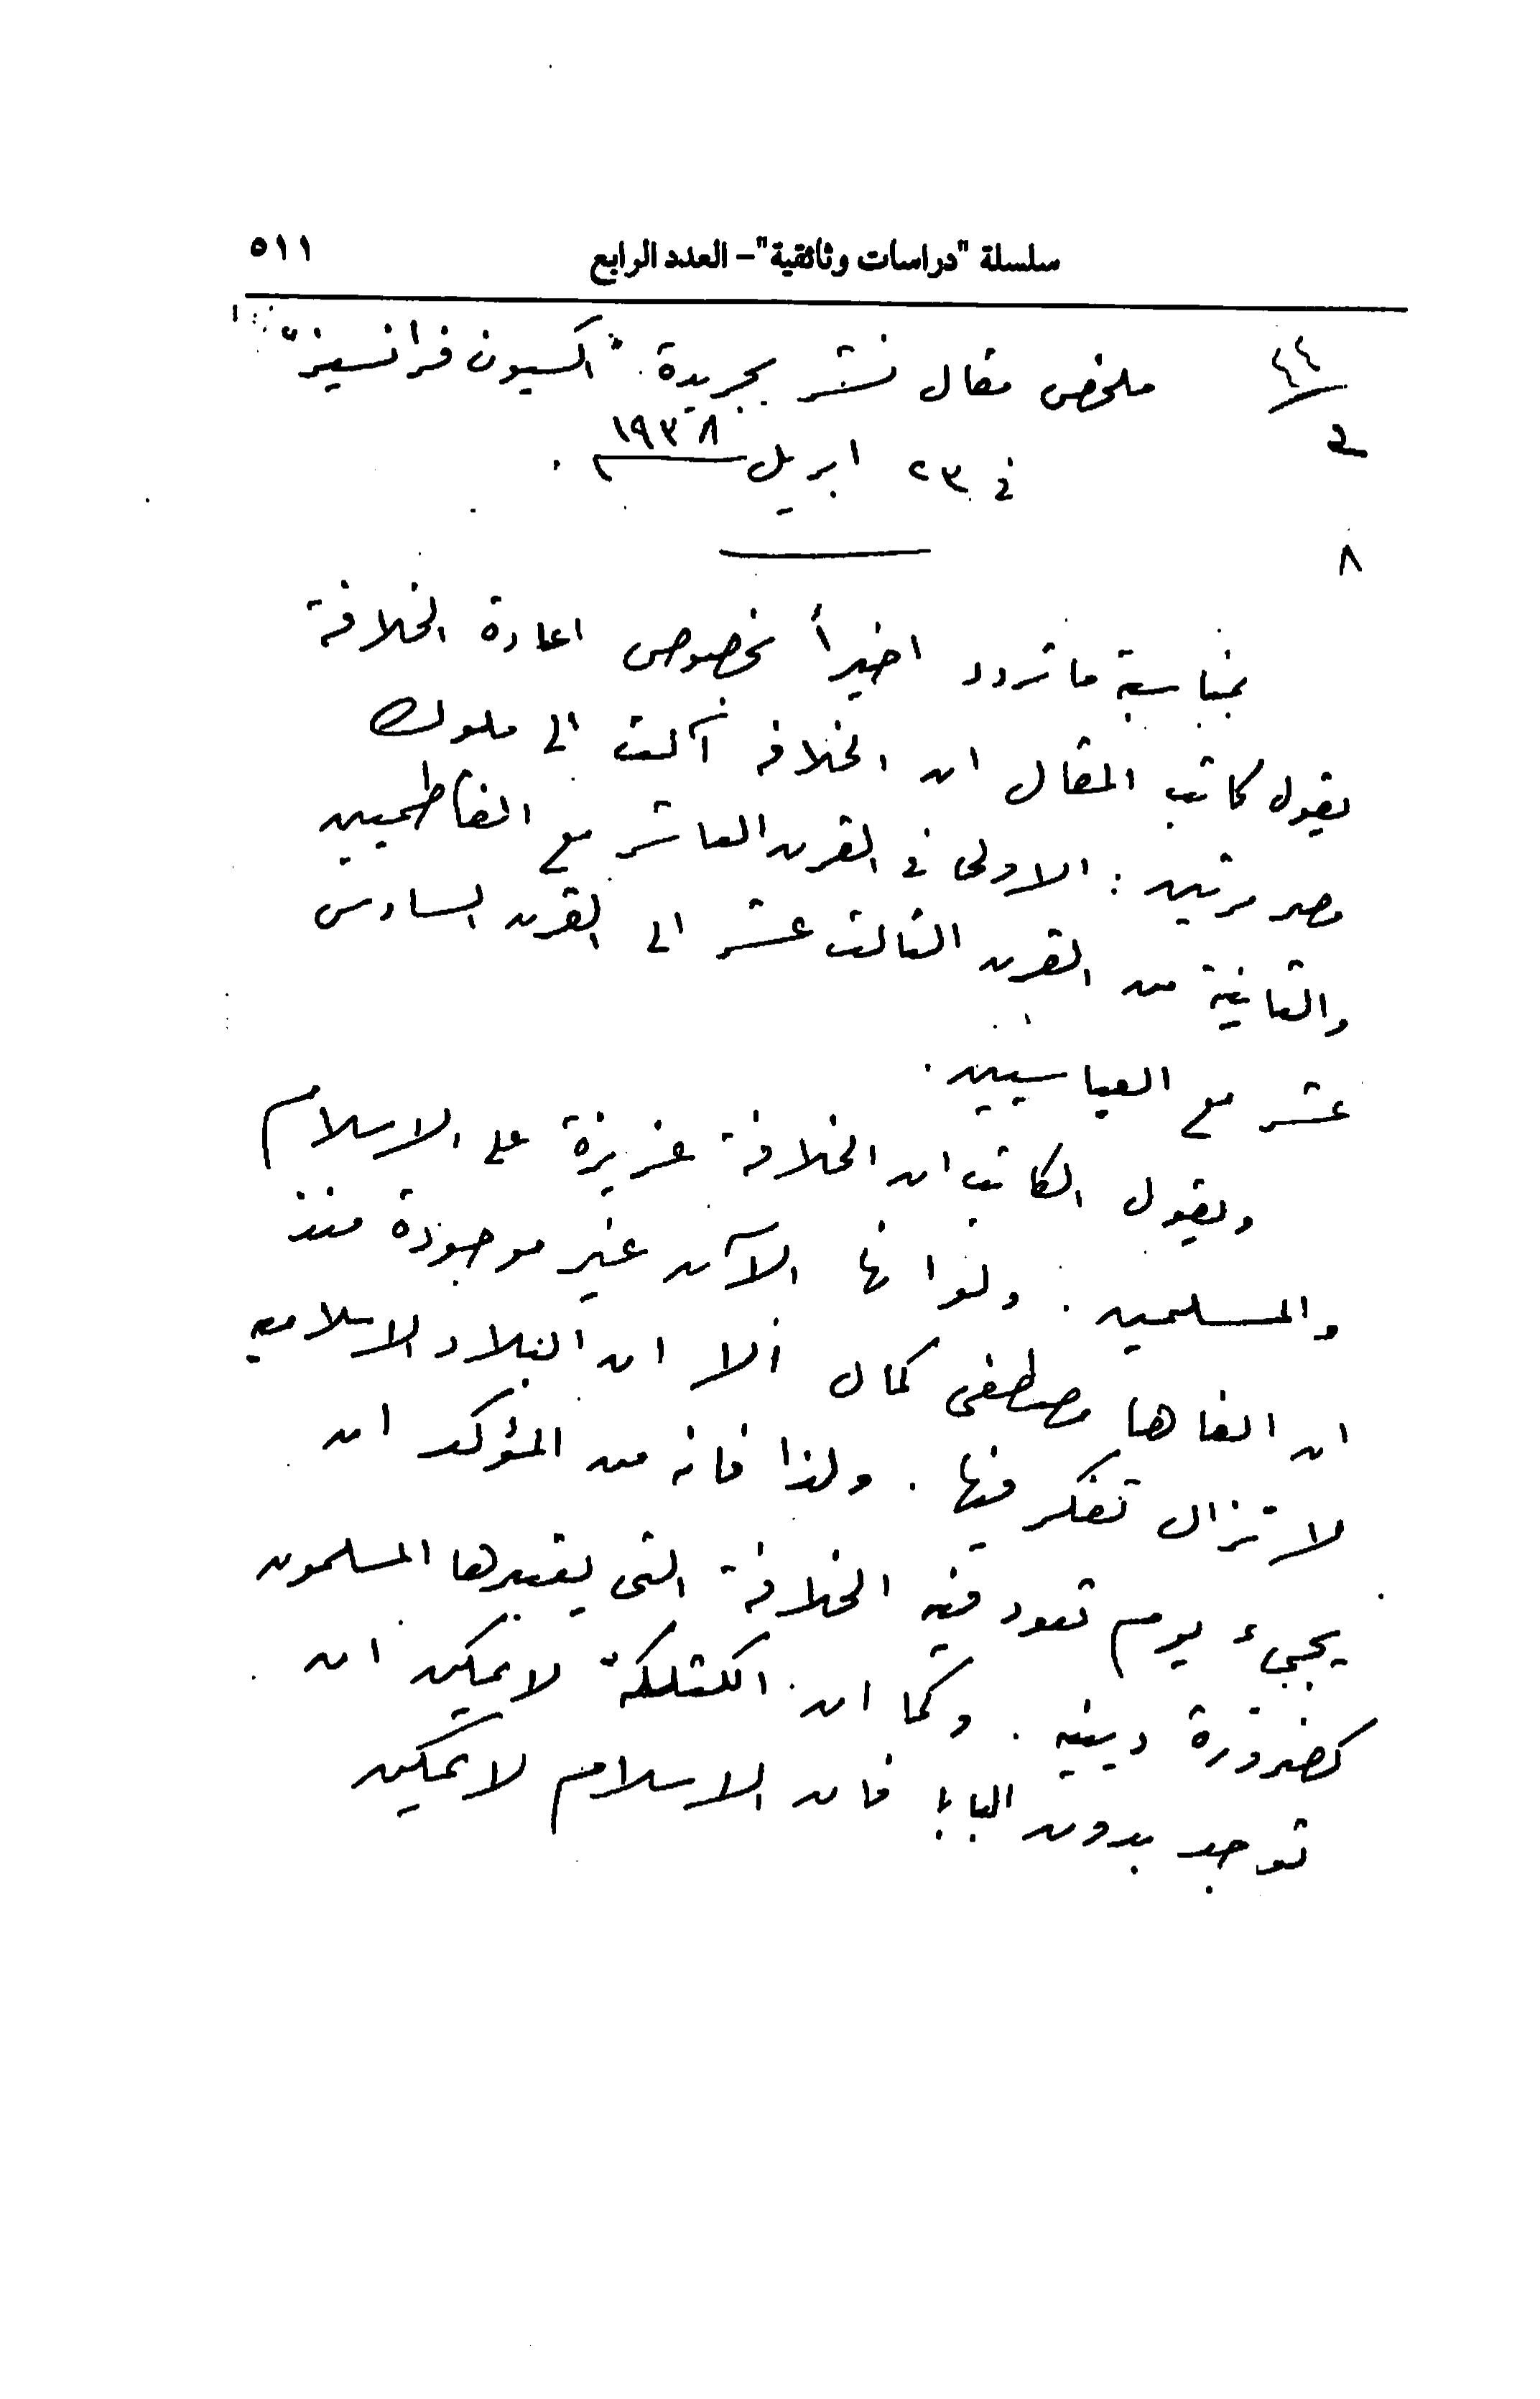 سلسلة "دراسات وثائقية" – العدد الرابع ٥١١
ملخص مقال نشر بجريدة "اكسيون فرانسيز"
في ٢٣ ابريل ١٩٣٨
٨
بمناسبة ما تردد اخيراً بخصوص اعادة الخلافة
يقول كاتب المقال ان الخلافه آلت الى ملوك
مصر مرتين : الاولى في القرن العاشر مع الفاطميين
والثانية من القرن الثالث عشر الى القرن السادس
عشر مع العباسيين .
ويقول الكاتب ان الخلافة عزيزة على الاسلام
والمسلمين . ولو انها الآن غير موجودة منذ
ان الغاها مصطفى كمال ألا ان البلاد الاسلاميه
لا تزال تفكر فيها . ولذا فانه من المؤكد ان
يجيء يوم تعود فيه الخلافة التى يعتبرها المسلمون
كضرورة دينيه . وكما ان الكثلكة لا يمكن ان
توجد بدون البابا فان الاسلام لا يمكن